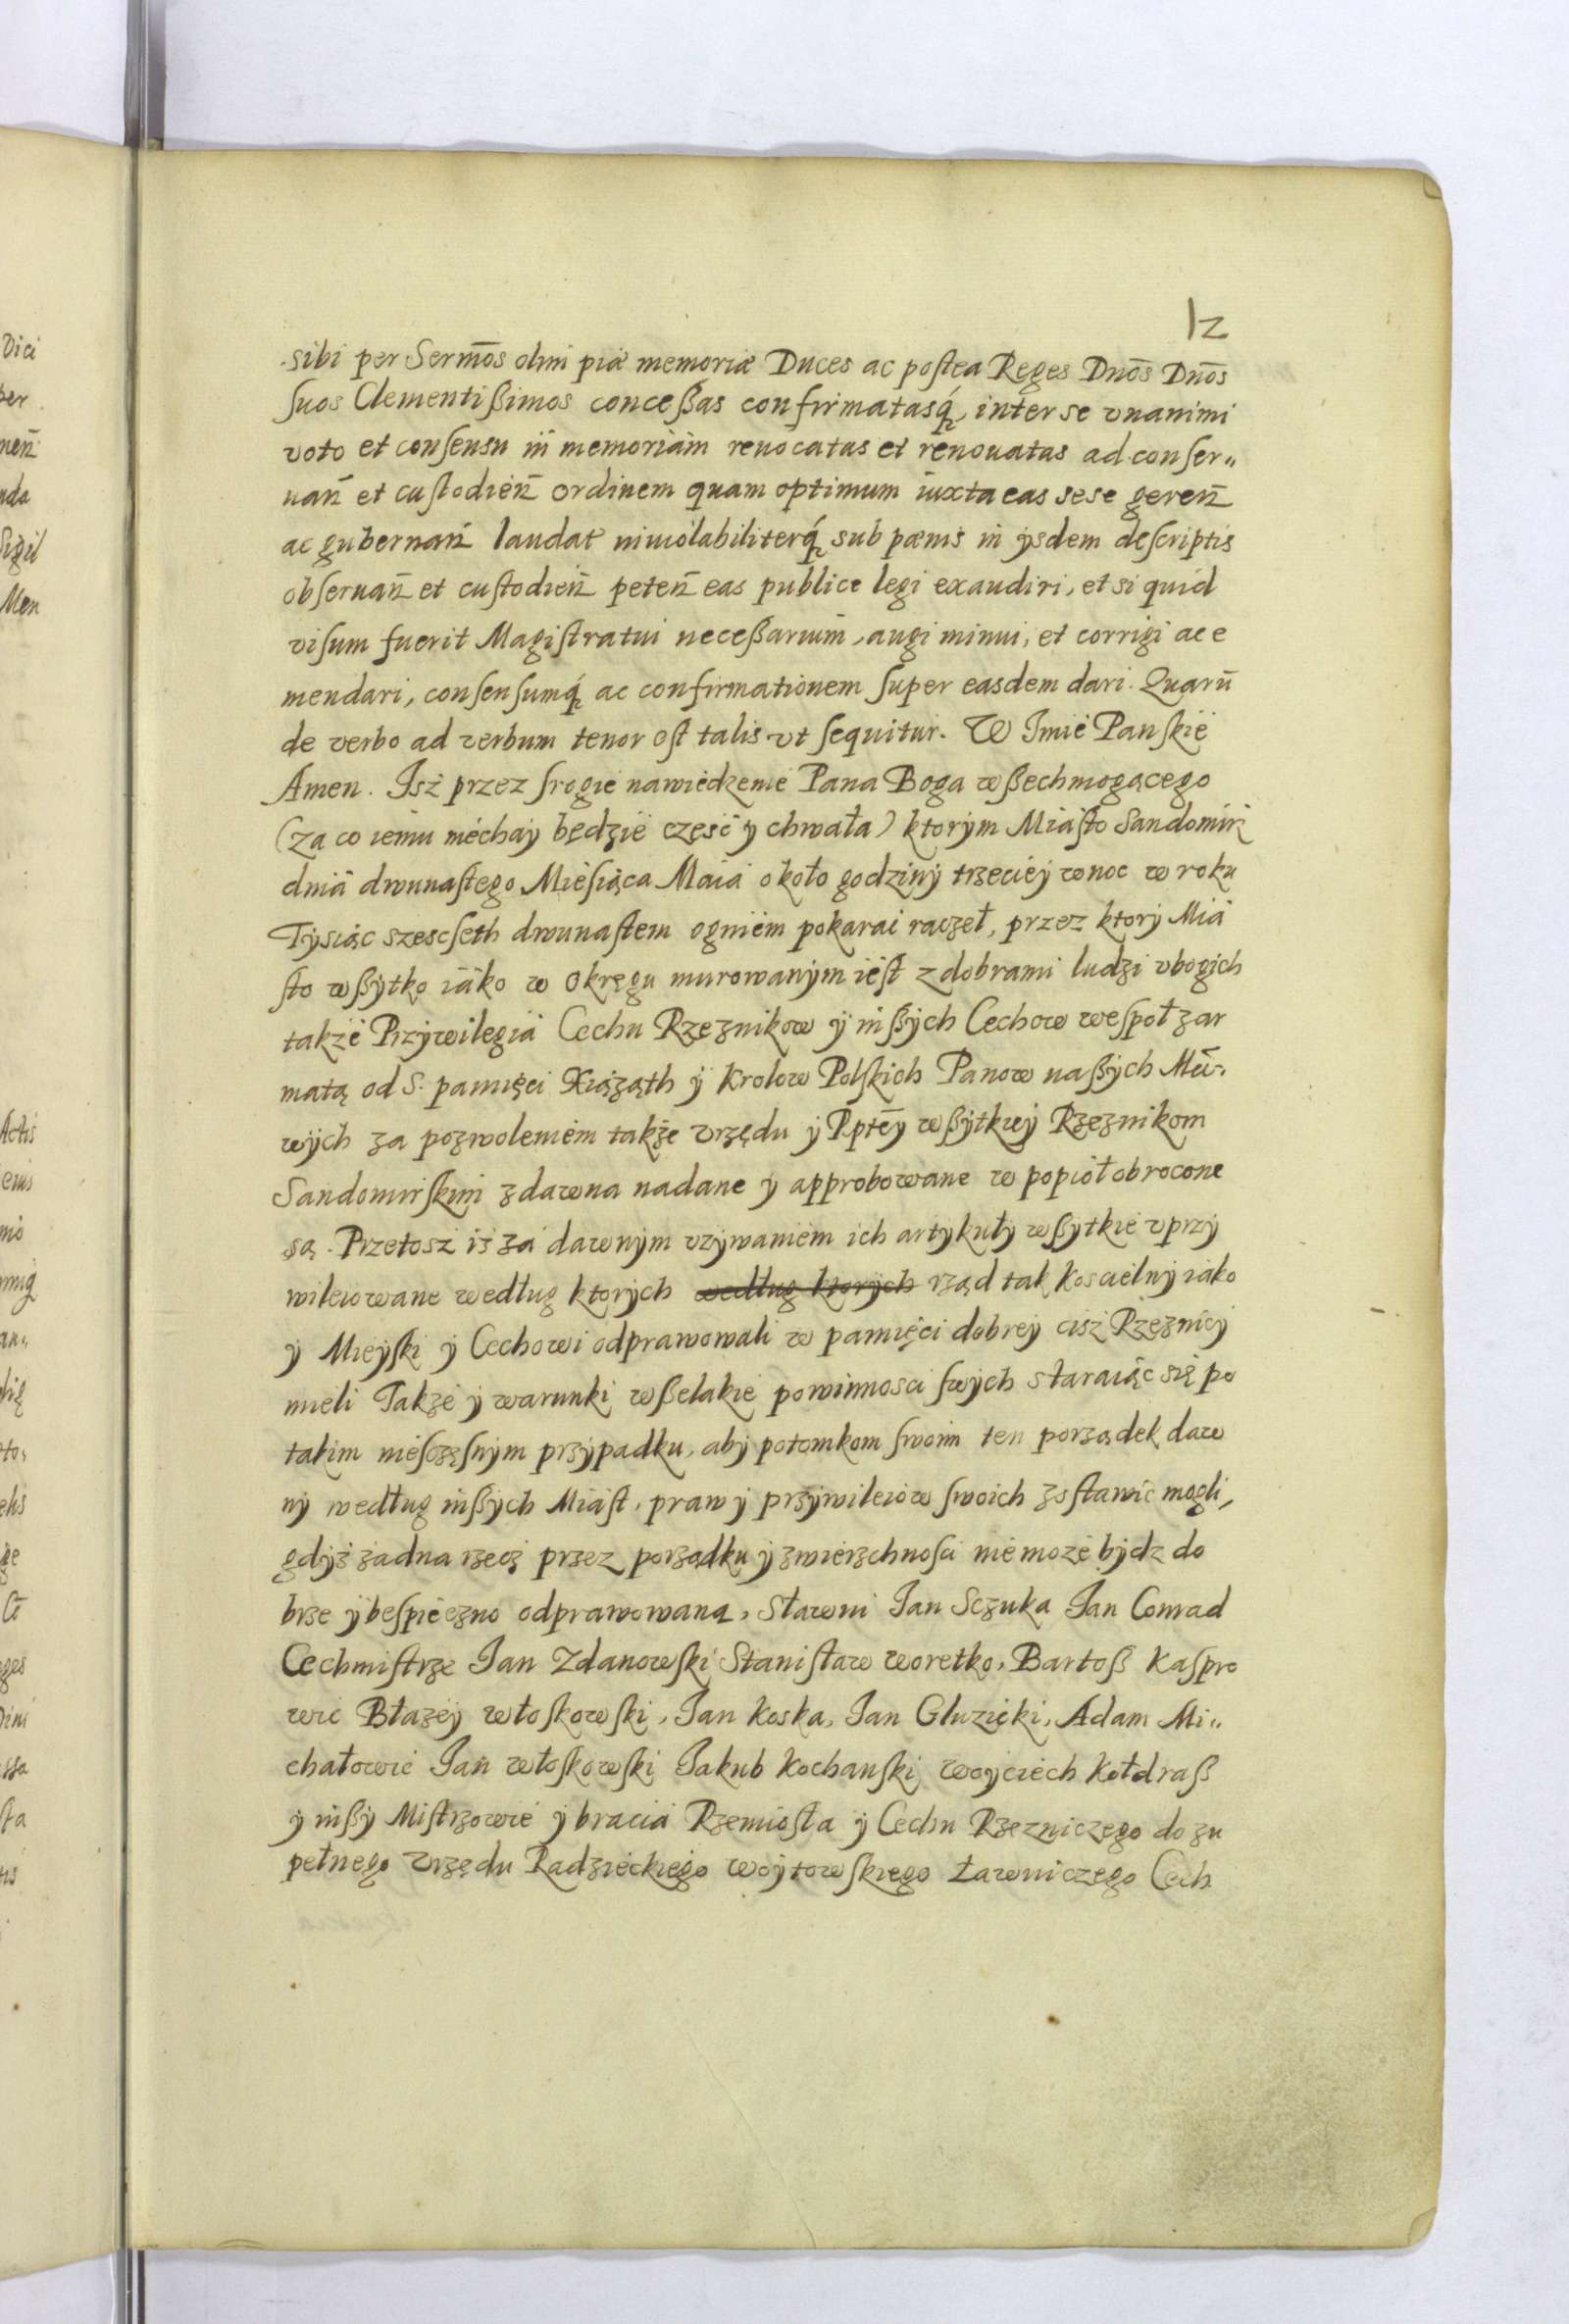 12
sibi per Sermōs olim piæ memoriæ Duces ac postea Reges Dnōs Dnōs
suos Clementißimos conceßas confirmatasq́, inter se vnanimi
voto et consensu in memoriam reuocatas et renouatas ad conser„
uan̄ et custodien̄ ordinem quam optimum iuxta eas sese geren̄
ac gubernan̄ laudat inuiolabiliterq́ sub pænis in ijsdem descriptis
obseruan̄ et custodien̄ peten̄ eas publice legi exaudiri, et si quid
visum fuerit Magistratui neceßarium, augi minui, et corrigi ac e
mendari, consensumq́ ac confirmationem super easdem dari. Quarū
de verbo ad verbum tenor est talis vt sequitur. W Imie Panskie
Amen. Isz przez srogie nawiedzenie Pana Boga wßechmogącego
(za co iemu niechay będzie część y chwała) ktorym Miasto Sandomirz
dnia dwunastego Miesiąca Maia około godziny trzeciey wnoc w roku
Tysiąc szescseth dwunastem ogniem pokarai raczeł, przez ktory Mia
sto wßytko iako w okręgu murowanym iest z dobrami ludzi vbogich
także Przywilegia Cechu Rzeznikow y inßych Cechow wespoł zar
matą od S. pamięci Xiążąth y Krolow Polskich Panow naßych Mū.
wych za pozwoleniem także vrzędu y Pptēy wßytkiey Rzeznikom
Sandomirskim zdawna nadane y approbowane w popioł obrocone
są. Przetosz iż za dawnym vzywaniem ich artykuły wßytkie vprzy
wileiowane według ktorych według ktorych rząd tak koscielny iako
y Mieyski y Cechowi odprawowali w pamięci dobrey cisz Rzeznicy
mieli Także y warunki wßelakie powinnosci swych staraiąc się po
takim niesczęsnym przypadku, aby potomkom swoim ten porządek daw
ny według inßych Miast, praw y przywileiow swoich zostawic mogli,
gdyż żadna rzecz przez porządku y zwierzchnosci nie może bydz do
brze y bespieczno odprawowana, sławni Jan Sczuka Jan Conrad
Cechmistrze Jan Zdanowski Stanisław woretko, Bartoß Kaspro
wic Błażey włoskowski, Jan Koska, Jan Gluzicki, Adam Mi„
chałowic Jan włoskowski Jakub Kochanski woyciech Kołdraß
y inßy Mistrzowie y bracia Rzemiosła y Cechu Rzezniczego do zu
pełnego Vrzędu Radzieckiego woytowskiego Ławniczego Cech